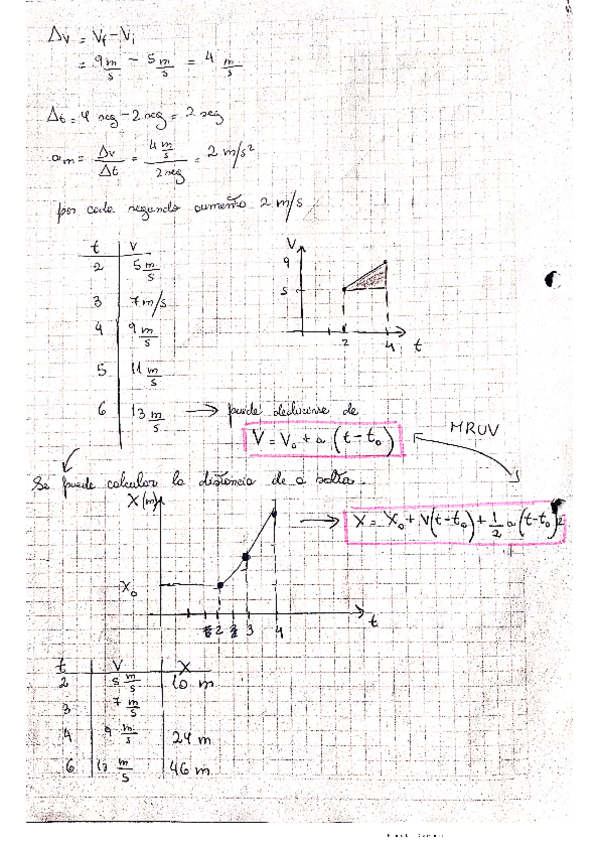 Δv = Vf - Vi
= 9 m/s - 5 m/s = 4 m/s
Δt = 4 seg - 2 seg = 2 seg
am = Δv/Δt = 4 m/s / 2 seg = 2 m/s²
por cada segundo aumento 2 m/s
t V
2 5 m/s
3 7 m/s
4 9 m/s
5 11 m/s
6 13 m/s → puede deducirse de
V
9
5
2 4 t
V = V₀ + a (t - t₀)
MRUV
Se puede calcular la distancia de a saltos.
X (m)
X = X₀ + V(t - t₀) + 1/2 a (t - t₀)²
X₀
2 3 4 t
t V X
2 5 m/s 10 m
3 7 m/s
4 9 m/s 24 m
6 13 m/s 46 m